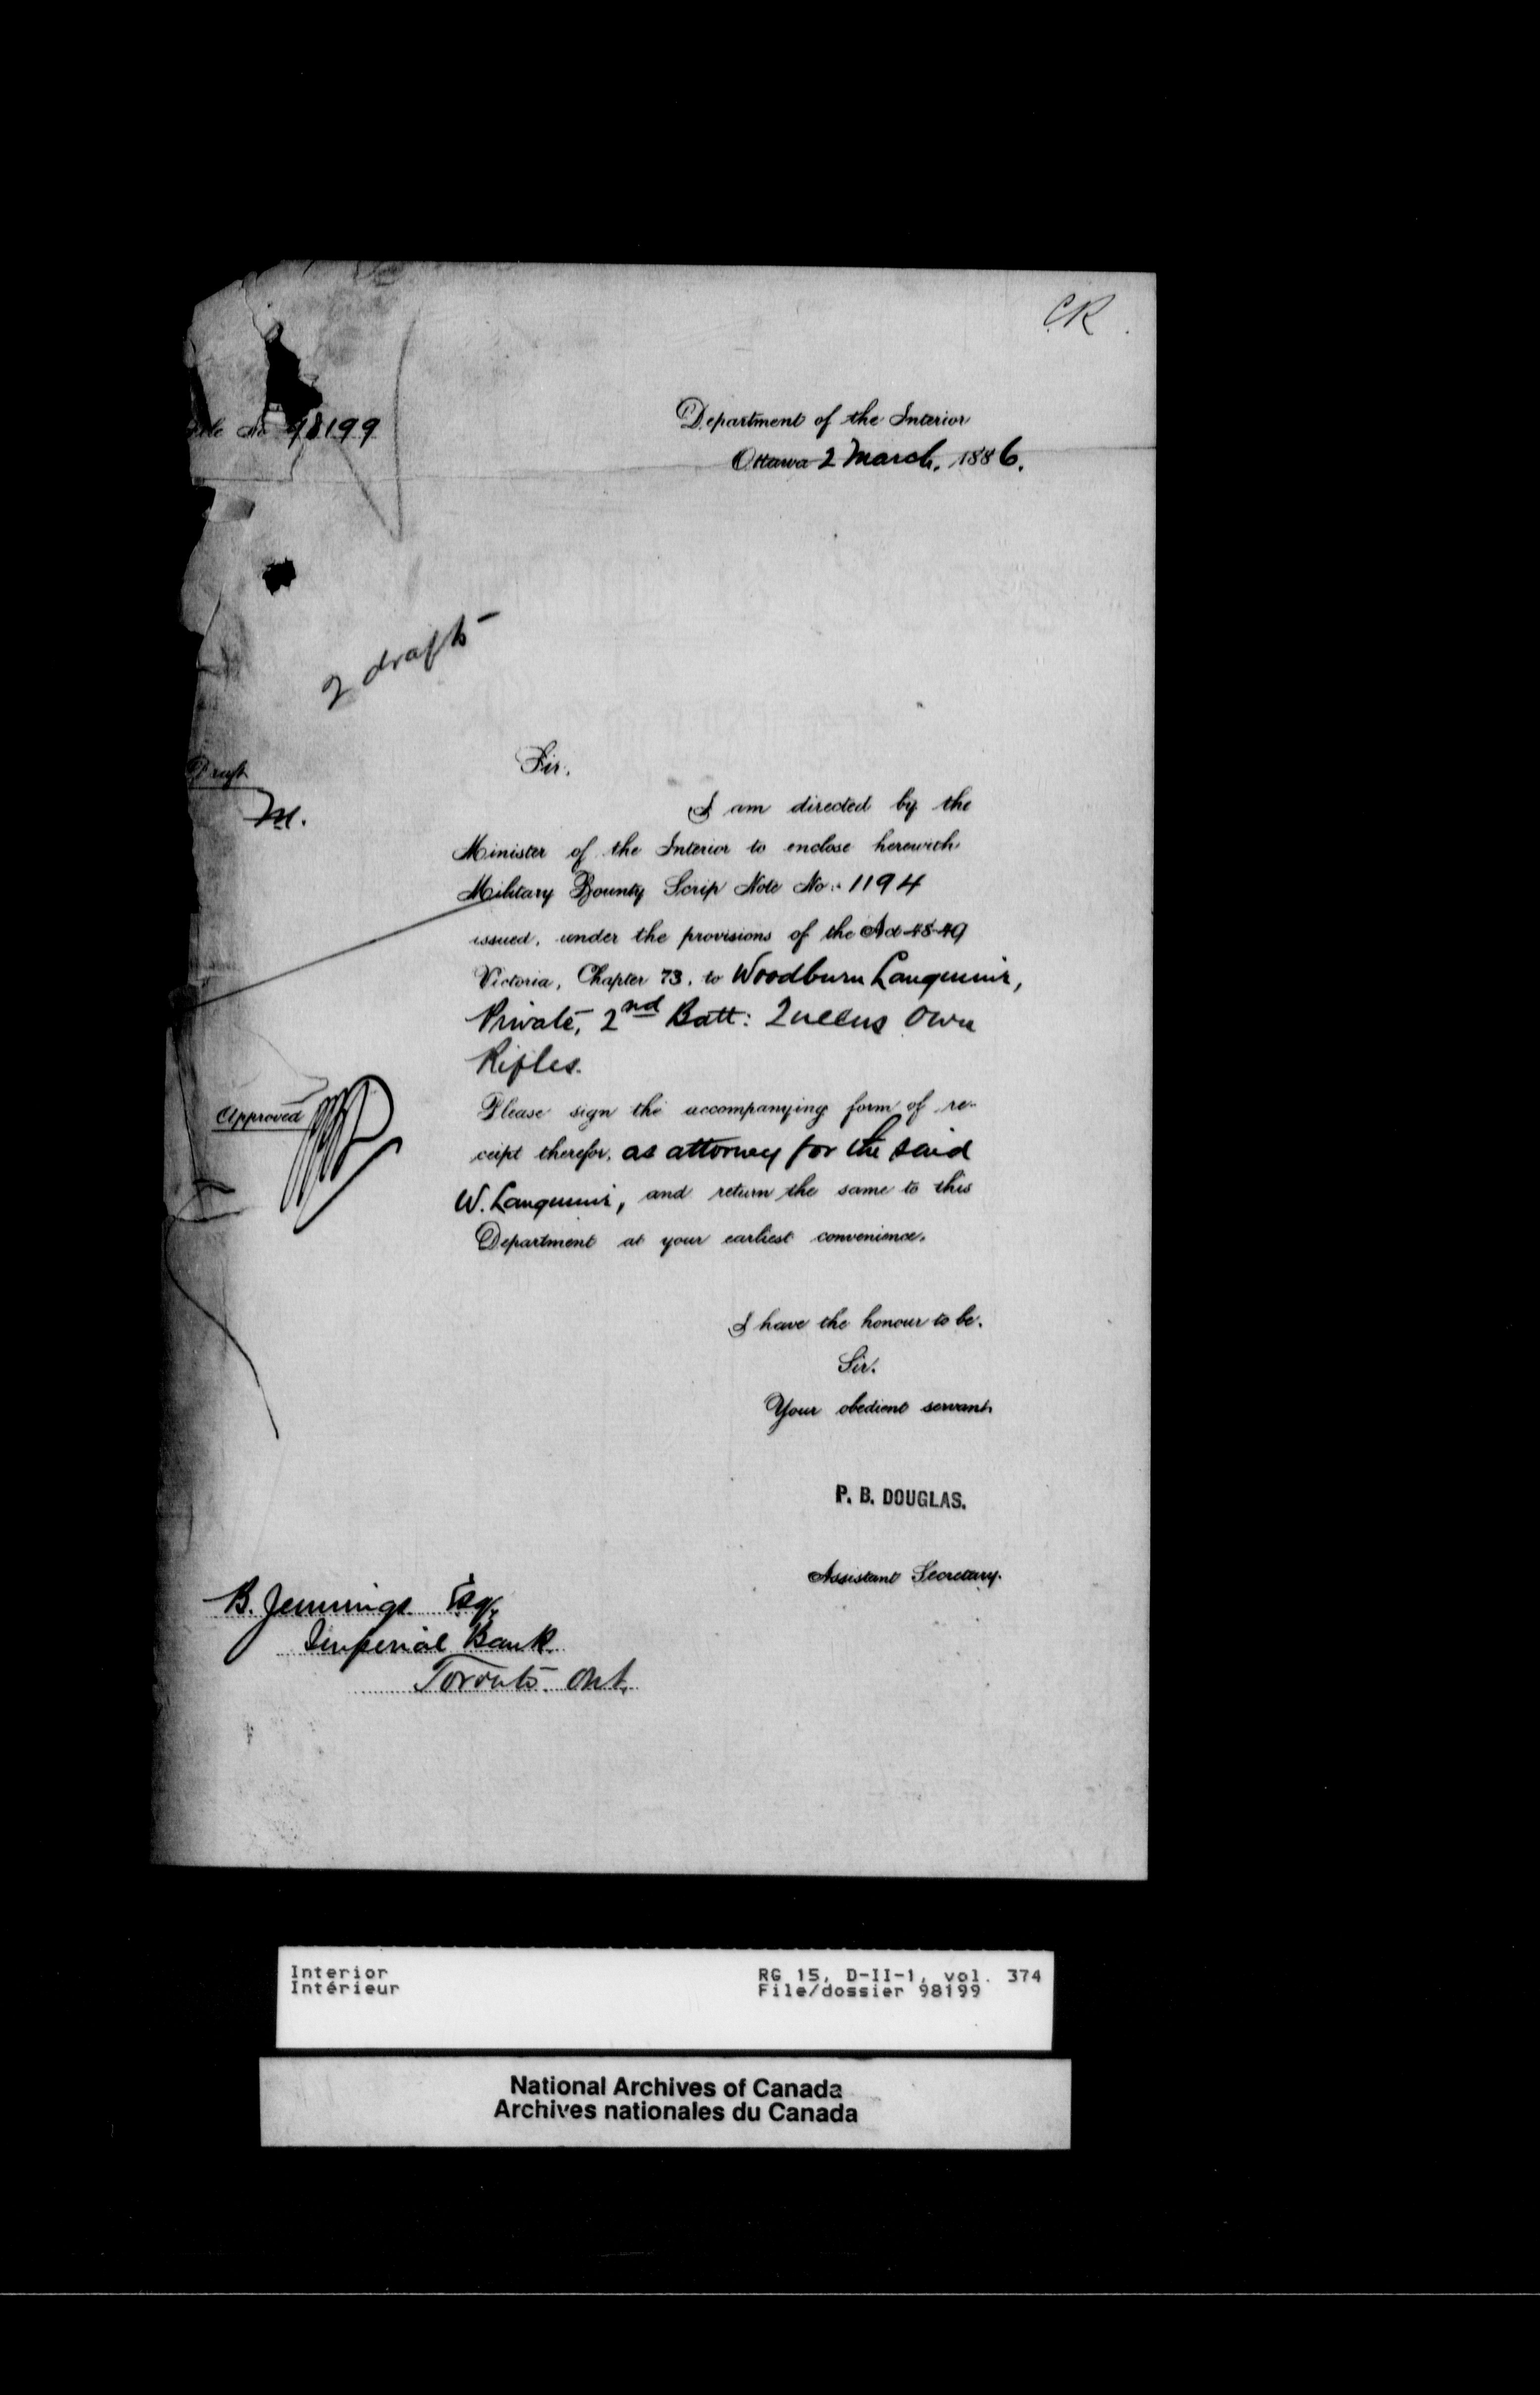 CR
File No 98199
Department of the Interior
Ottawa 2 March, 1886.
2 drafts
Draft
M.
Sir,
I am directed by the
Minister of the Interior to enclose herewith
Military Bounty Scrip Note No: 1194
issued, under the provisions of the Act 48-49
Victoria, Chapter 73, to Woodburn Langmuir,
Private, 2nd Batt: Queens Own
Rifles.
Approved
Please sign the accompanying form of re-
ceipt therefor, as attorney for the said
W. Langmuir, and return the same to this
Department at your earliest convenience.
I have the honour to be,
Sir,
Your obedient servant,
P. B. DOUGLAS.
Assistant Secretary.
B. Jennings Esq.
Imperial Bank
Toronto. Ont.
Interior
Intérieur
RG 15, D-II-1, vol. 374
File/dossier 98199
National Archives of Canada
Archives nationales du Canada